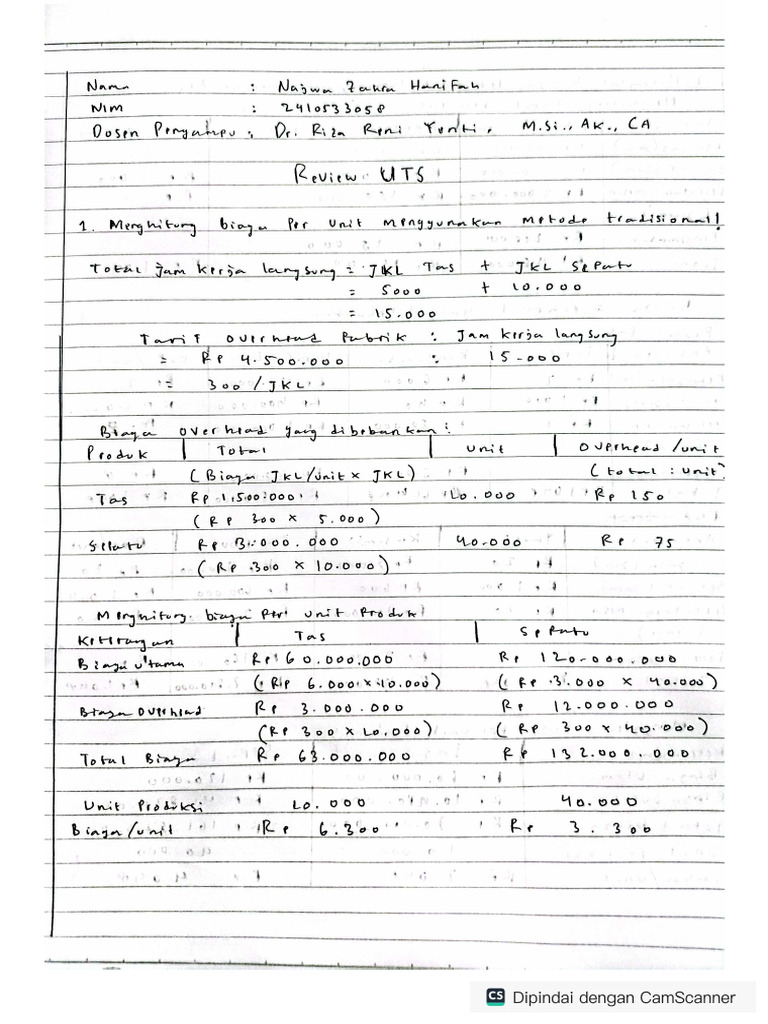 Nama : Najwa Zahra Hanifah
NIM : 2410533058
Dosen Pengampu : Dr. Riza Reni Yenti, M.Si., Ak., CA
Review UTS
1. Menghitung biaya Per Unit menggunakan metode tradisional!
Total jam kerja langsung = JKL Tas + JKL Sepatu
= 5000 + 10.000
= 15.000
Tarif overhead Pabrik : Jam kerja langsung
= Rp 4.500.000 : 15.000
= 300 / JKL
Biaya overhead yang dibebankan :
Produk | Total | Unit | Overhead /unit
(Biaya JKL/unit x JKL) (total : unit)
Tas Rp 1.500.000 10.000 Rp 150
(Rp 300 x 5.000)
Sepatu Rp 3.000.000 40.000 Rp 75
(Rp 300 x 10.000)
Menghitung biaya Per Unit Produk
Keterangan | Tas | Sepatu
Biaya Utama Rp 60.000.000 Rp 120.000.000
(Rp 6.000 x 10.000) (Rp 3.000 x 40.000)
Biaya Overhead Rp 3.000.000 Rp 12.000.000
(Rp 300 x 10.000) (Rp 300 x 40.000)
Total Biaya Rp 63.000.000 Rp 132.000.000
Unit Produksi 10.000 40.000
Biaya/unit Rp 6.300 Rp 3.300
CS Dipindai dengan CamScanner